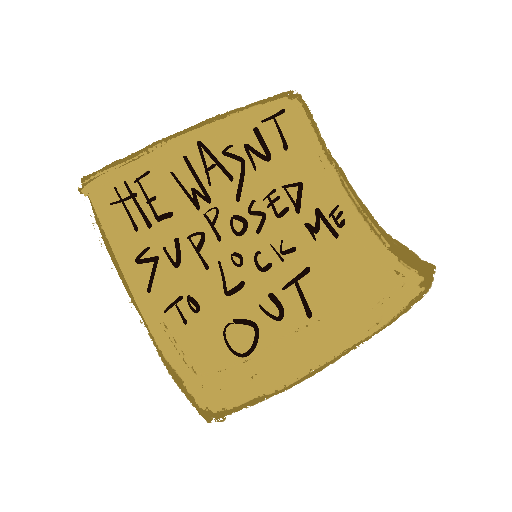 HE WASNT
SUPPOSED
TO LOCK ME
OUT